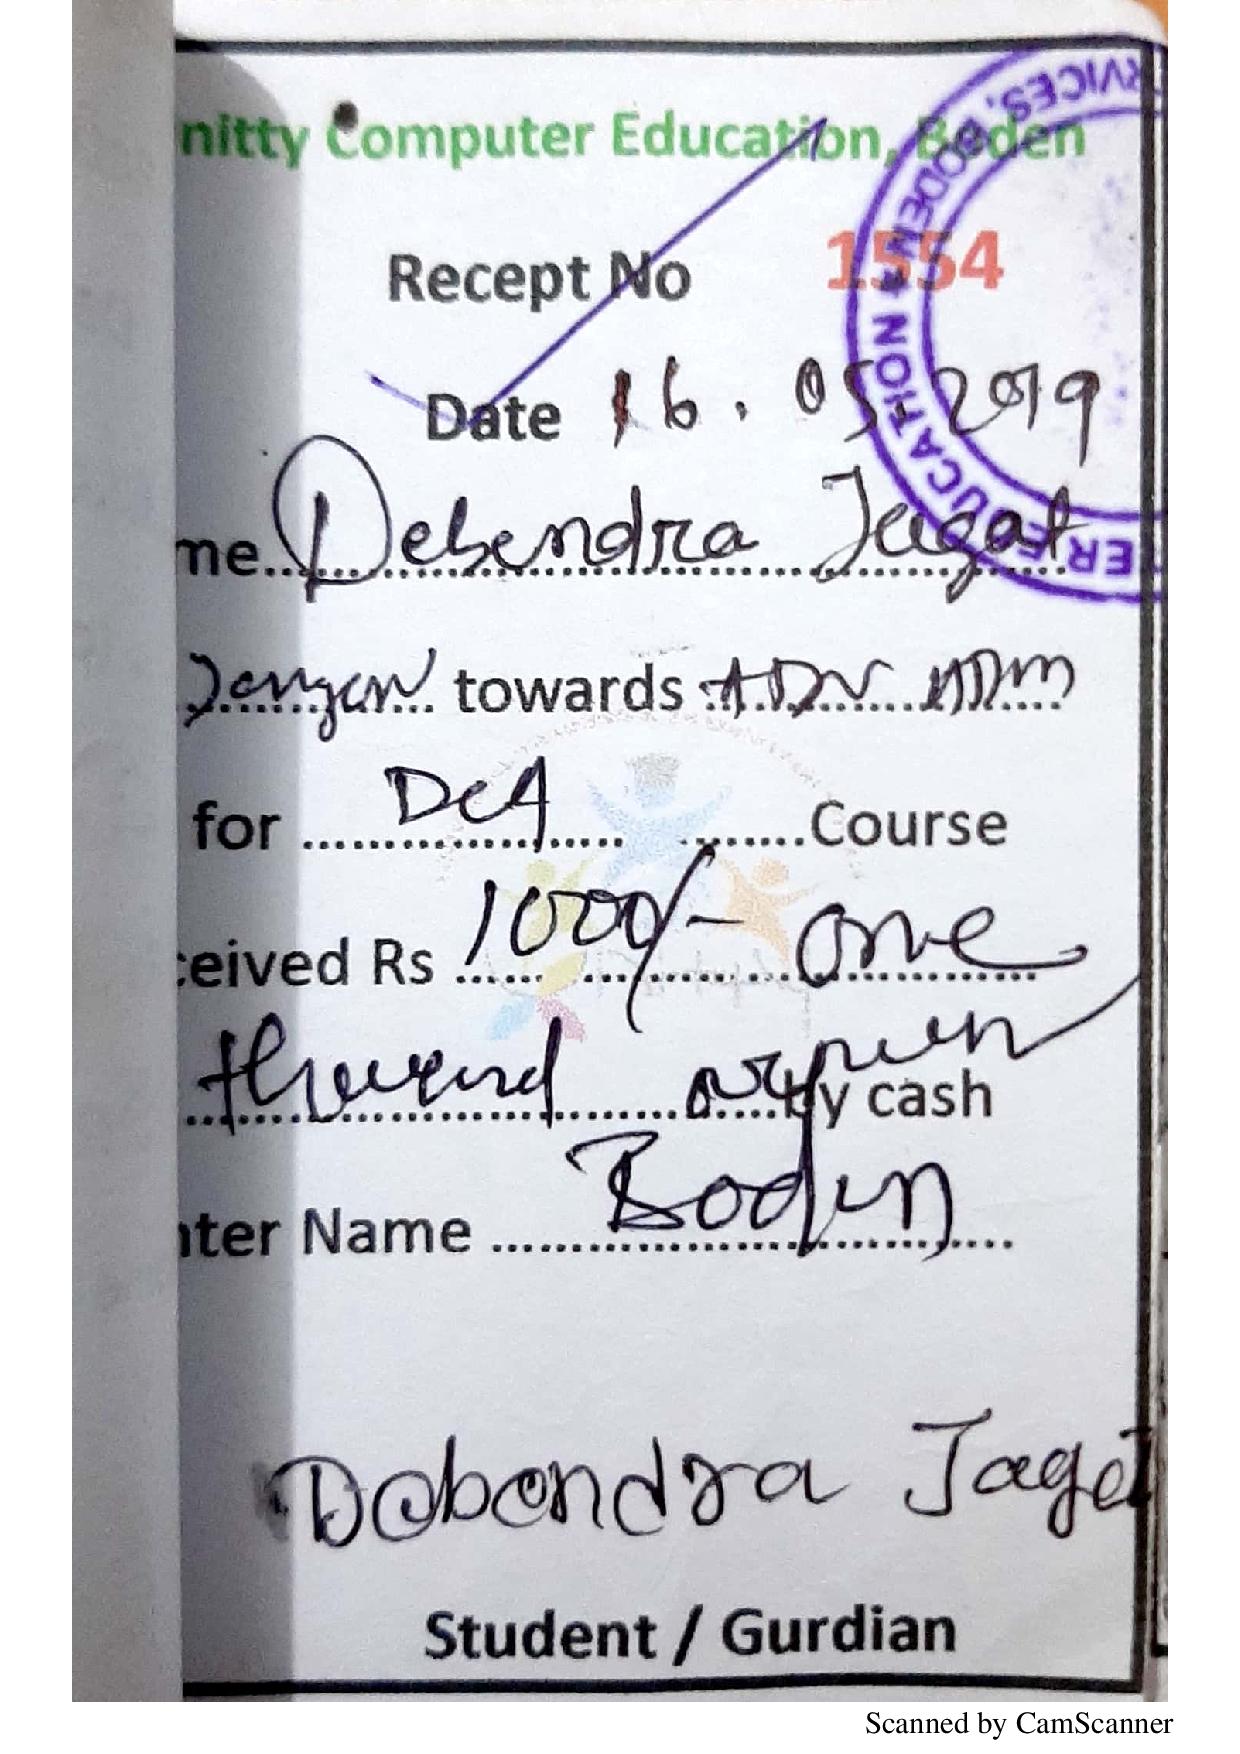 nitty Computer Education, Boden
Recept No 1554
Date 16.05.2019
me Debendra Jagat
towards ADV ADM
for DCA Course
ceived Rs 1000/- one
thousand rupees by cash
nter Name Boden
Debendra Jagat
Student / Gurdian
RVICES, BODEN * 
TER EDUCATION
Scanned by CamScanner